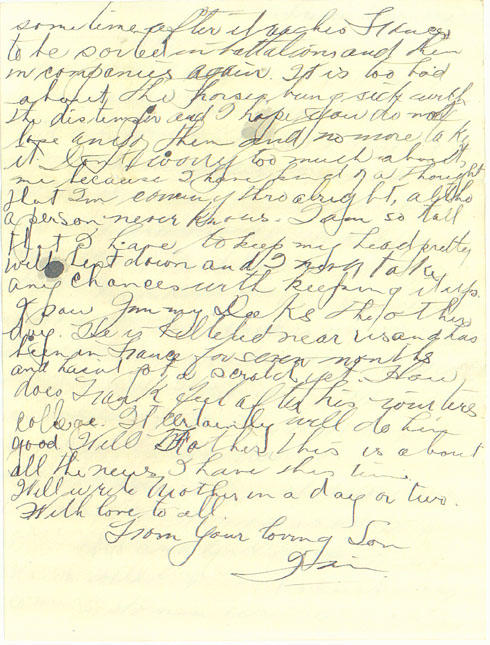 sometime after it reaches France
to be sorted in battalions and then
in companies again. It is too bad
about the horses being sick with
the distemper and I hope you do not
lose any of them and no more take
it. Don't worry too much about
me because I have kind of a thought
that I'm coming thro alright, altho
a person never knows. I am so tall
that I have to keep my head pretty
well kept down and I won't take
any chances with keeping it up.
I saw Jimmy the other
day. He is billeted near us and has
been in France for seven months
and hasn't got a scratch yet. How
does Frank feel after his winters
college. It certainly will do him
good. Well Father this is about
all the news I have this time.
Will write Mother in a day or two.
With love to all
From Your loving Son